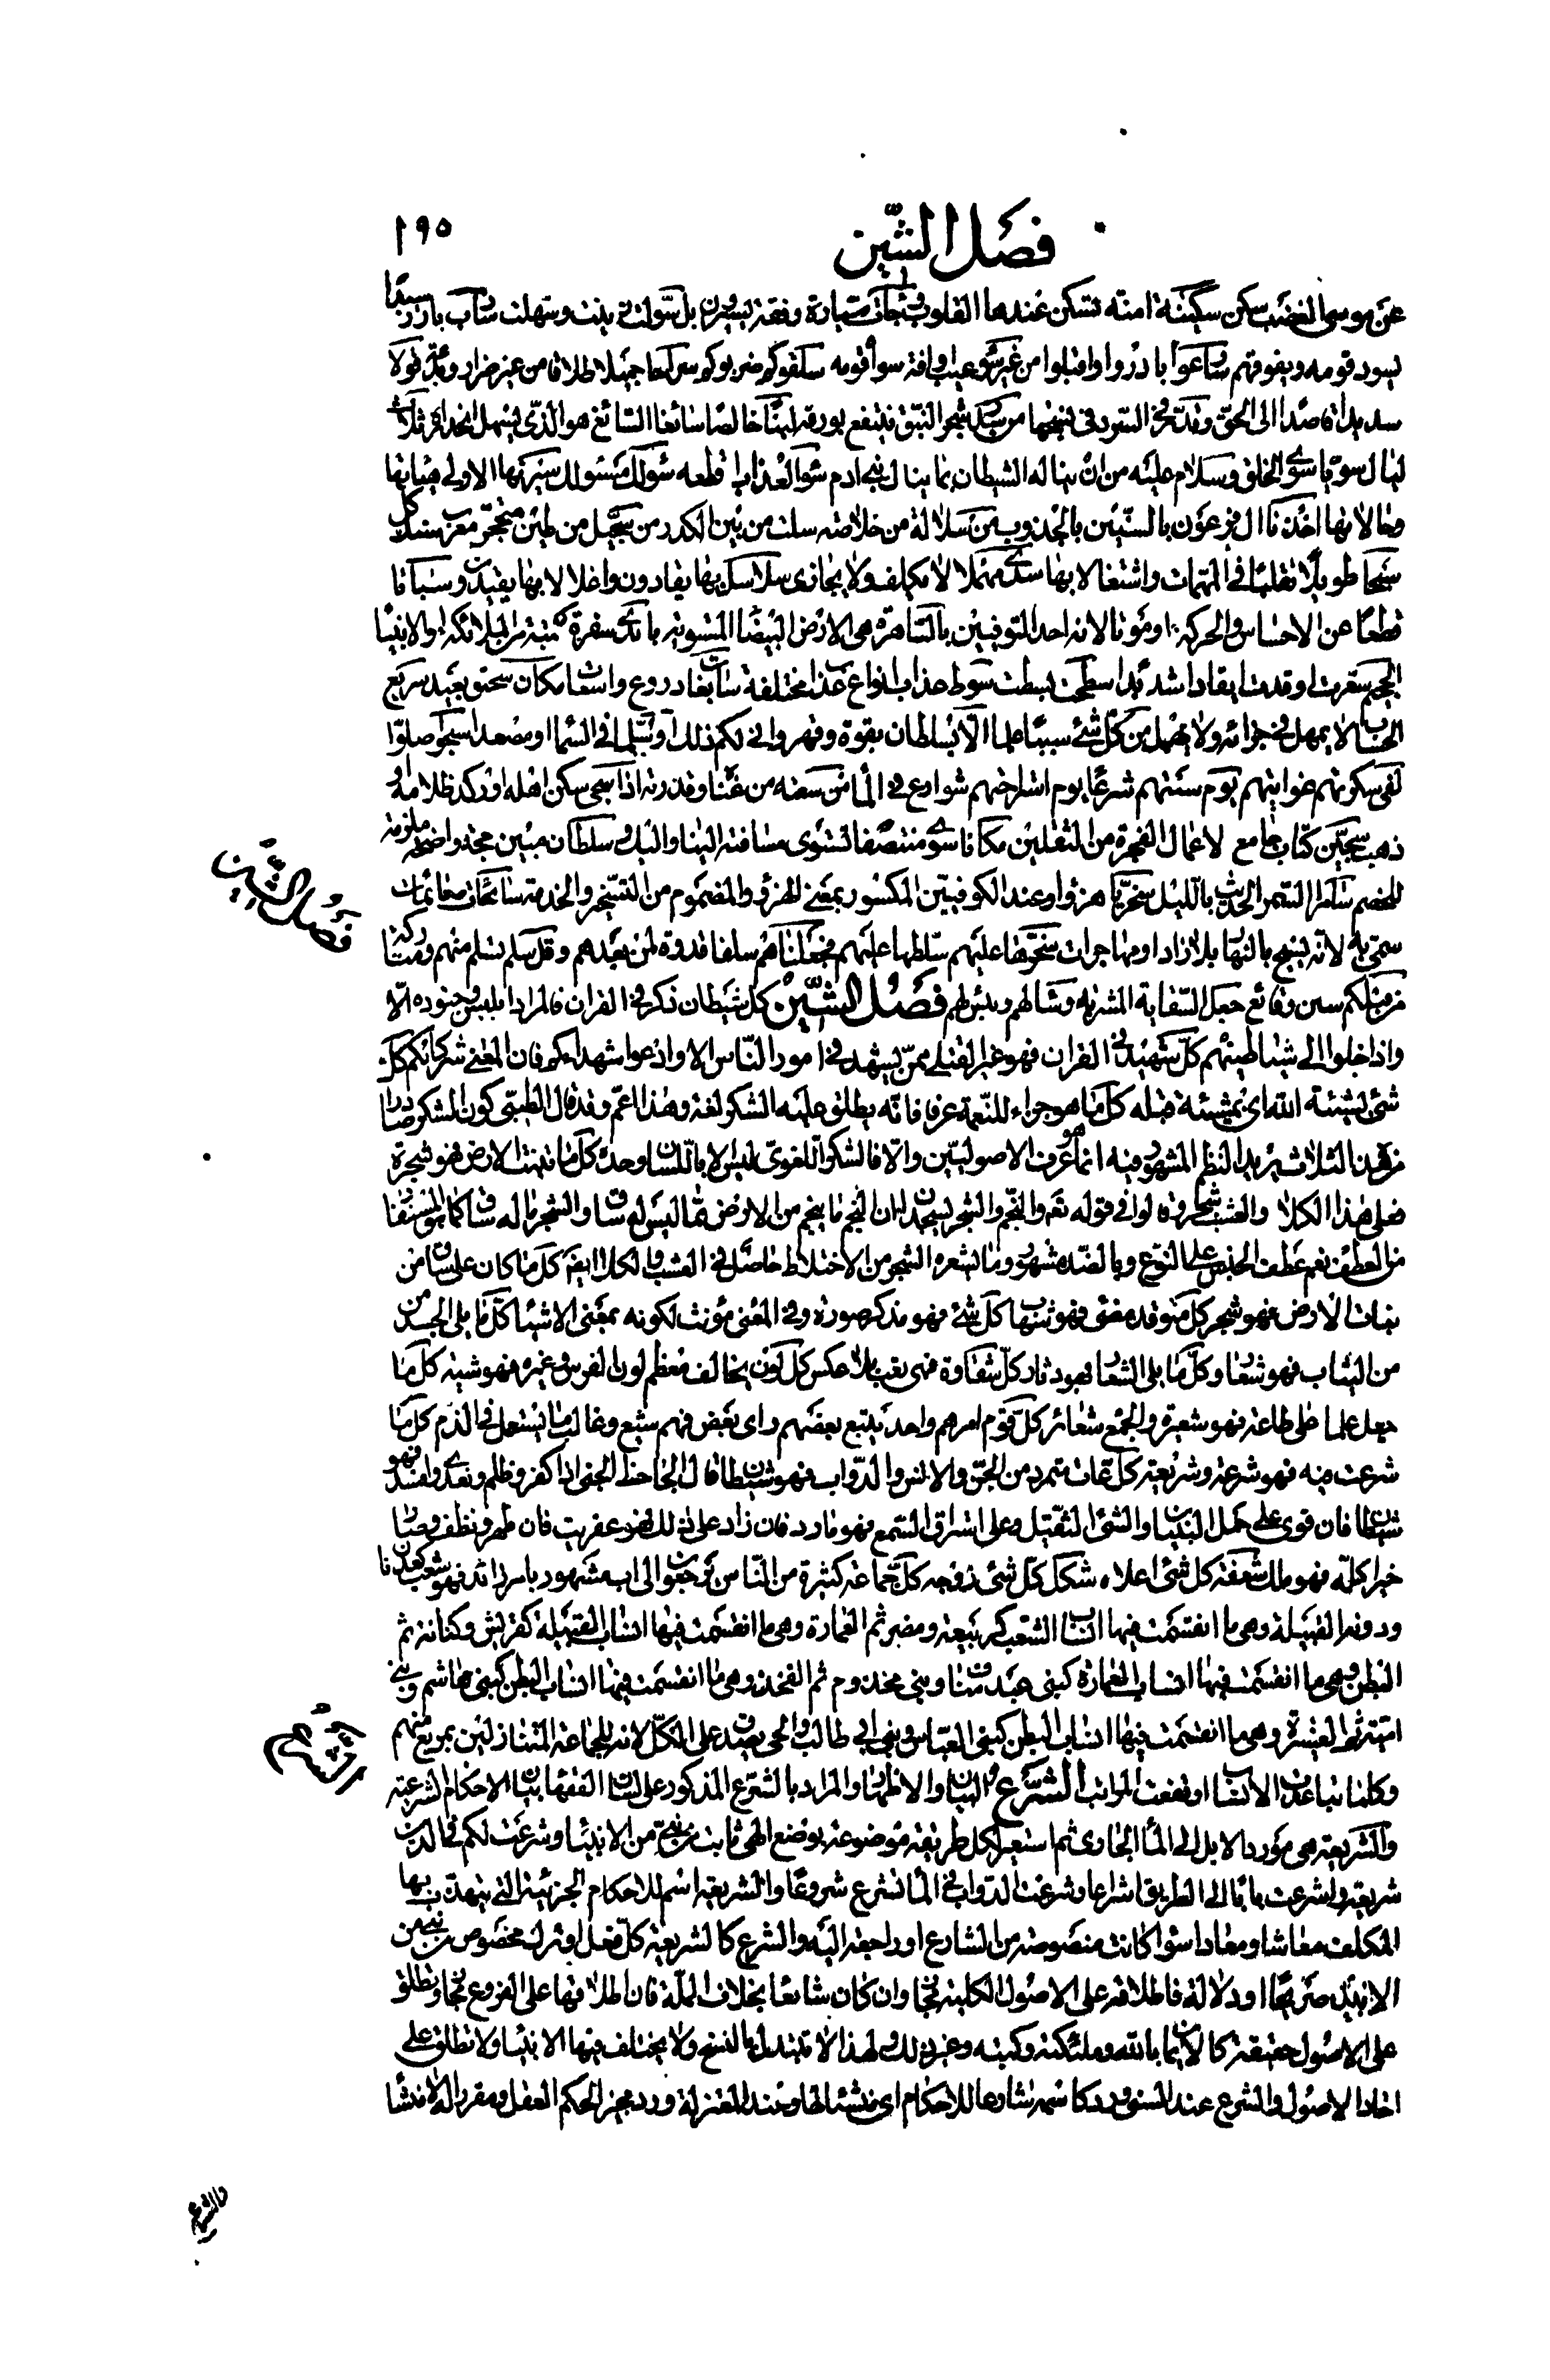 فصل الشين
١٩٥
عن موسى الغضب سكن سكينة امنة تسكن عندها القلوب سيارة رفقة يسيرون بل سولت زينت وسهلت
يسود قومه ويفوقهم سارعوا بادروا واقبلوا من غير سوء عيب وافة سوأة قومه سلقوكم ضربوكم سراحا جميلا طلاقا من غير ضرار قولا
سديدا قاصدا الى الحق وقدر في السرد في نسجها من سدر شجر النبق ينتفع بورقه لبنا خالصا سائغا السائغ هو الذي يسهل انحداره ثلاث
ليال سويا سوي الخلق وسلام عليه من ان يناله الشيطان بما ينال بني ادم سوء العذاب اقطعه سؤلك مسئولك سيرتها الاولى هيأتها
وحالاتها اخذنا ال فرعون بالسنين بالجدوب من سلالة من خلاصة سلت من بين الكدر من سجيل من طين متحجر معرب سنك كل
سبحا طويلا تقلبا في المهمات واشتغالا بها سدى مهملا لا يكلف ولا يجازى سلاسل بها يقادون واغلالا بها يقيدون وسباتا
قطعا عن الاحساس والحركة او موتا لانه احد التوفيين بالساهرة هي الارض البيضاء المستوية بايدي سفرة كتبة من الملائكة او الانبياء
الجحيم سعرت اوقدت ايقادا شديدا سطحت بسطت سوط عذاب انواع عذاب مختلفة سابغات دروع واسعات مكان سحيق بعيد سريع
الحساب لا يمهل في جزائه ولا يهمل من كل شيء سببا علما الا بسلطان بقوة وقهر واني لكم ذلك او سلما في السماء او مصعدا سجدا صلوا
لفي سكرتهم غوايتهم يوم سبتهم شرعا يوم اشراحهم شوارع في الماء من سعته من غناه وقدرته اذا سجى سكن اهله او ركد ظلامه او
ذهب سجين كتاب جامع لاعمال الفجرة من الثقلين مكانا سوى منتصفا تستوى مسافته الينا واليك وسلطان مبين حجة واضحة ملزمة
للخصم سامرا السمر الحديث بالليل سخريا هزؤا وعند الكوفيين المكسور بمعنى الهزؤ والمضموم من التسخير والخدمة سائحات صائمات
سمي به لانه يسيح بالنهار بلا زاد او مهاجرات سخرها عليهم سلطها عليهم فجعلناهم سلفا قدوة لمن بعدهم وقل سلام تسلم منكم ومتاركة
من قبلكم سنن وقائع جعل السقاية المشربة فصل الشين كل شيطان ذكر في القران فالمراد ابليس وجنوده الا
واذا خلوا الى شياطينهم كل شهيد في القران فهو غير القتلى ممن يشهد في امور الناس الا وادعوا شهداءكم فان المعنى شركائكم كل
شيء بمشيئة الله اي بمشيئة كل ما هو جزاء للنعمة عرفا فانه يطلق عليه الشكر لغة وهذا اعم وقد قال الطيبي كون الشكر صادرا
من هذه الثلاث يريد النظم المشهور فيه انما هو عرف الاصوليين والا فالشكر اللغوي ليس الا باللسان وحده كل ما تنبته الارض فهو شجرة
فعلى هذا الكلاء والعشب شجر وقالوا في قوله تعالى والنجم والشجر يسجدان ان النجم ما ينجم من الارض مما ليس له ساق والشجر ما له ساق كما هو المستفاد
من العطف نعم عطف الجنس على النوع وبالضد مشهور وما اشعره الشجر من الاختلاط حاصل في العشب والكلاء ايضا كل ما كان على ساق من
نبات الارض فهو شجر كل متوقد مضيء فهو شهاب كل شيء فهو مذكر صورة وفي المعنى مؤنث لكونه بمعنى الاشياء كل ما يلي الجسد من
من الثياب فهو شعار وكل ما يلي الشعار فهو دثار كل شقاوة فهي تعب بلا عكس كل لون يخالف معظم لون الفرس وغيره فهو شية كل ما
جعل علما على طاعة فهو شعيرة والجمع شعائر كل قوم امرهم واحد يتبع بعضهم راى بعض فهم شيع وغالب ما يستعمل في الذم كل ما
شرعت فيه فهو شرعة وشريعة كل عات متمرد من الجن والانس والدواب فهو شيطان قال الجاحظ الجني اذا كفر وظلم وتعدى وافسد فهو
شيطان فان قوى على حمل البنيان والشيء الثقيل وعلى استراق السمع فهو مارد فان زاد على ذلك فهو عفريت فان طهر ونظف وصار
خيرا كله فهو ملك شعفة كل شيء اعلاه شكل كل شيء زوجه كل جماعة كثيرة من الناس يرجعون الى اب مشهور بامر زائد فهو شعب كعدنان
ودونه القبيلة وهي ما انقسمت فيها انساب الشعب كربيعة ومضر ثم العمارة وهي ما انقسمت فيها انساب القبيلة كقريش وكنانة ثم
البطن وهي ما انقسمت فيها انساب العمارة كبني عبد مناف وبني مخزوم ثم الفخذ وهي ما انقسمت فيها انساب البطن كبني هاشم وبني
امية ثم العشيرة وهي ما انقسمت فيها انساب البطن كبني العباس وبني ابي طالب والحي يصدق على الكل لانه للجماعة المتنازلين بمربع منهم
وكلما تباعدت الانساب ارتفعت المراتب الشرع البيان والاظهار والمراد بالشرع المذكور على لسان الفقهاء بيان الاحكام الشرعية
والشريعة هي مورد الابل الى الماء الجاري ثم استعير لكل طريقة موضوعة بوضع الهي ثابت من نبي من الانبياء وشرعت لكم في الدين
شريعة واشرعت بابا الى الطريق اشراعا وشرعت الدواب في الماء تشرع شروعا والشريعة اسم للاحكام الجزئية التي يتهذب بها
المكلف معاشا ومعادا سواء كانت منصوصة من الشارع او راجعة اليه والشرع كالشريعة كل فعل او ترك مخصوص من نبي من
الانبياء صريحا او دلالة فاطلاقه على الاصول الكلية مجاز وان كان شائعا بخلاف الملة فان اطلاقها على الفروع مجاز وتطلق
على الاصول حقيقة كالايمان بالله وملئكته وكتبه وغير ذلك ولهذا لا تتبدل بالنسخ ولا يختلف فيها الانبياء ولا تطلق على
احاد الاصول والشرع عند السني ورد كاسمه شارعا للاحكام اي منشئا لها وعند المعتزلة ورد مجيزا لحكم العقل ومقررا له لا منشأ
فصل الشين
الشرع
والشرع